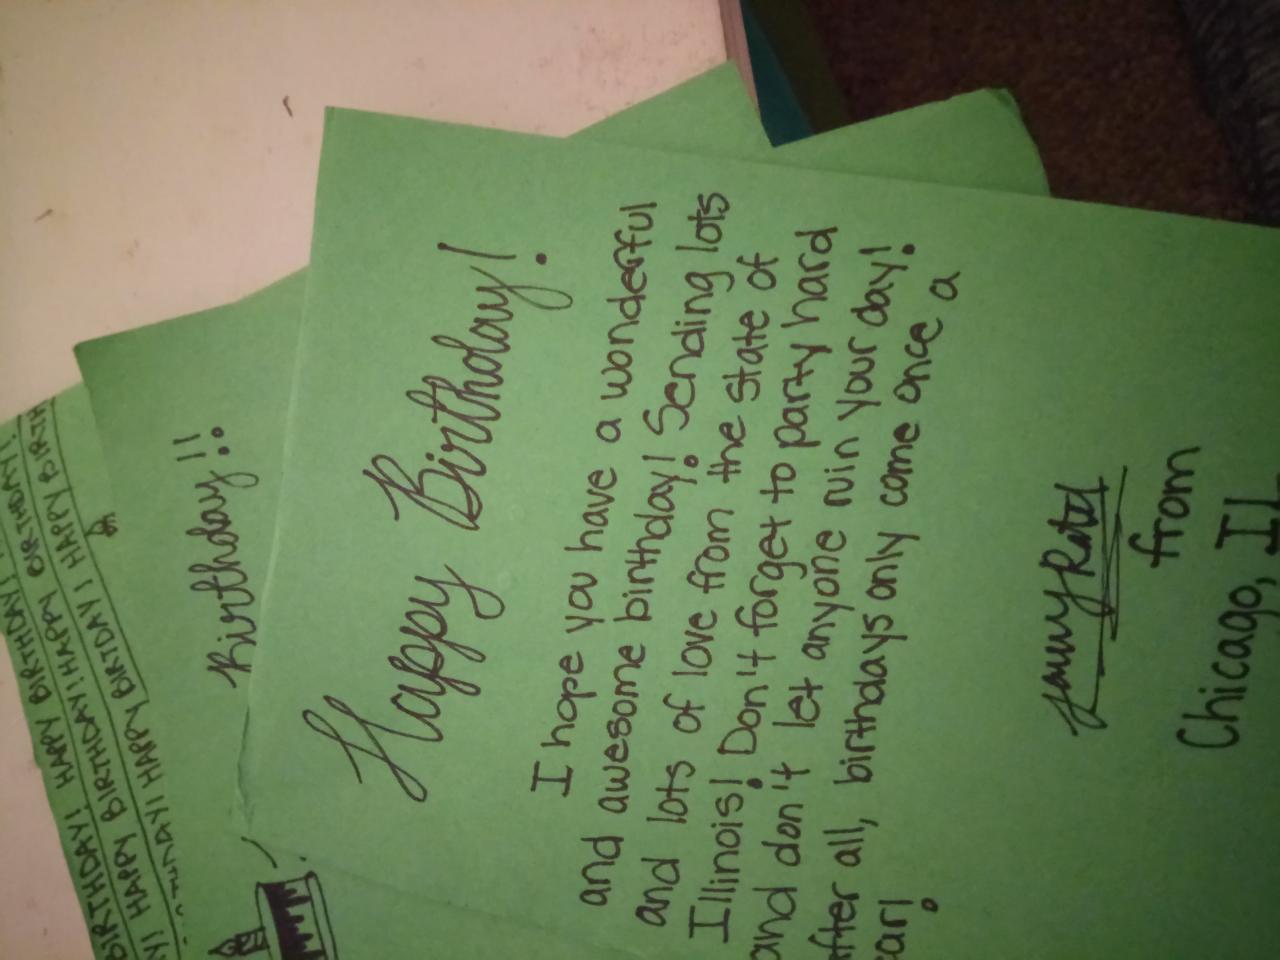 Happy Birthday!
I hope you have a wonderful
and awesome birthday! Sending lots
and lots of love from the state of
Illinois! Don't forget to party hard
and don't let anyone ruin your day!
After all, birthdays only come once a
ear!
from
Chicago, IL
Birthday!!
BIRTHDAY! HAPPY BIRTHDAY!
BIRTHDAY! HAPPY BIRTHDAY! HAPPY BIRTHDAY!
Y! HAPPY BIRTHDAY! HAPPY BIRTH
HAPPY BIRTDAY! HAPPY BIRTH